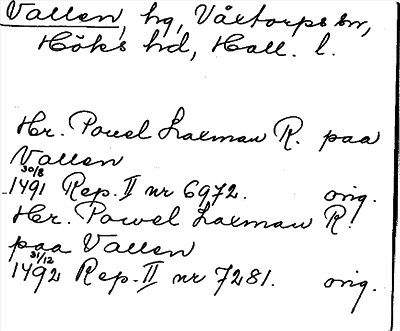 Vallen, hg, Våxtorps sn,
Höks hd, Hall. l.
Hr. Powel Laxman R. paa
Vallen
30/8
1491 Rep. II nr 6972. orig.
Hr. Powel Laxman R.
paa Vallen
31/12
1492 Rep. II nr 7281. orig.